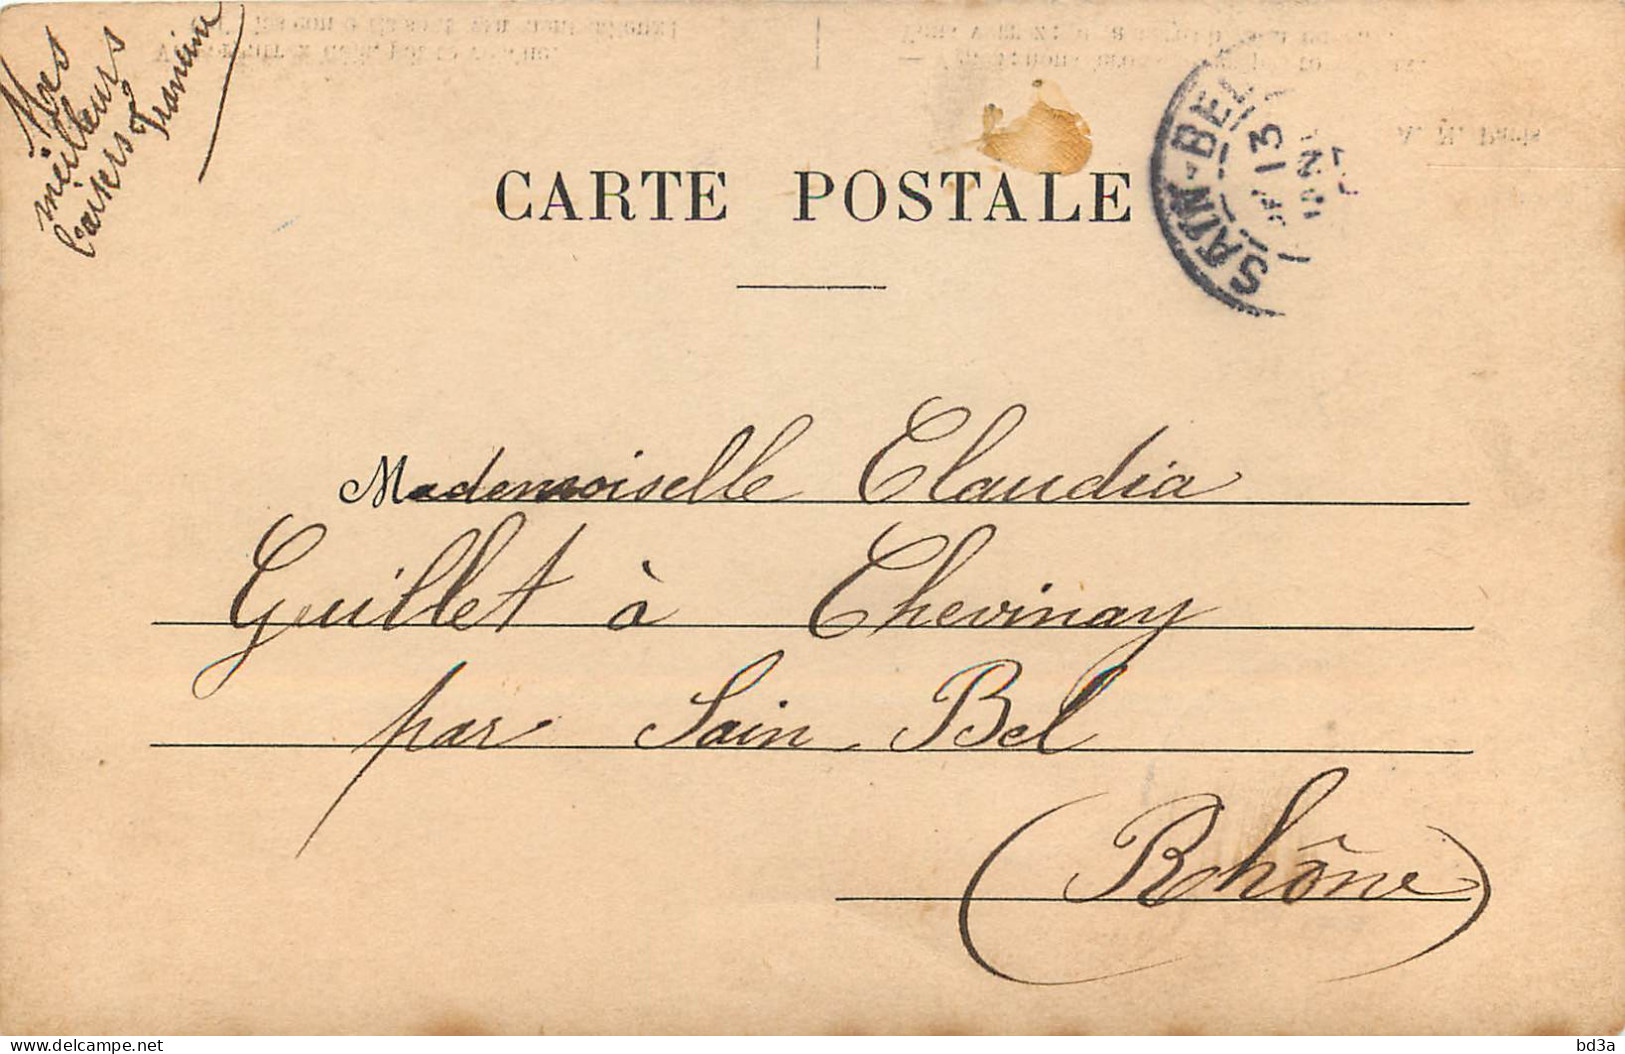 Mes
meilleurs
baisers
Francine
CARTE POSTALE
SAIN-BEL
13
Mademoiselle Claudia
Guillet à Chevinay
par Sain Bel
(Rhône)
bd3a